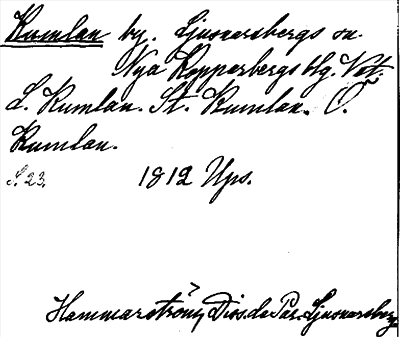 Kumlan by. Ljusnarsbergs sn.
Nya Kopparbergs blg. Vet.
L. Kumlan. St. Kumlan. Ö.
Kumlan.
S. 23. 1812 Ups.
Hammarström, Diss. de Par. Ljusnarsberg